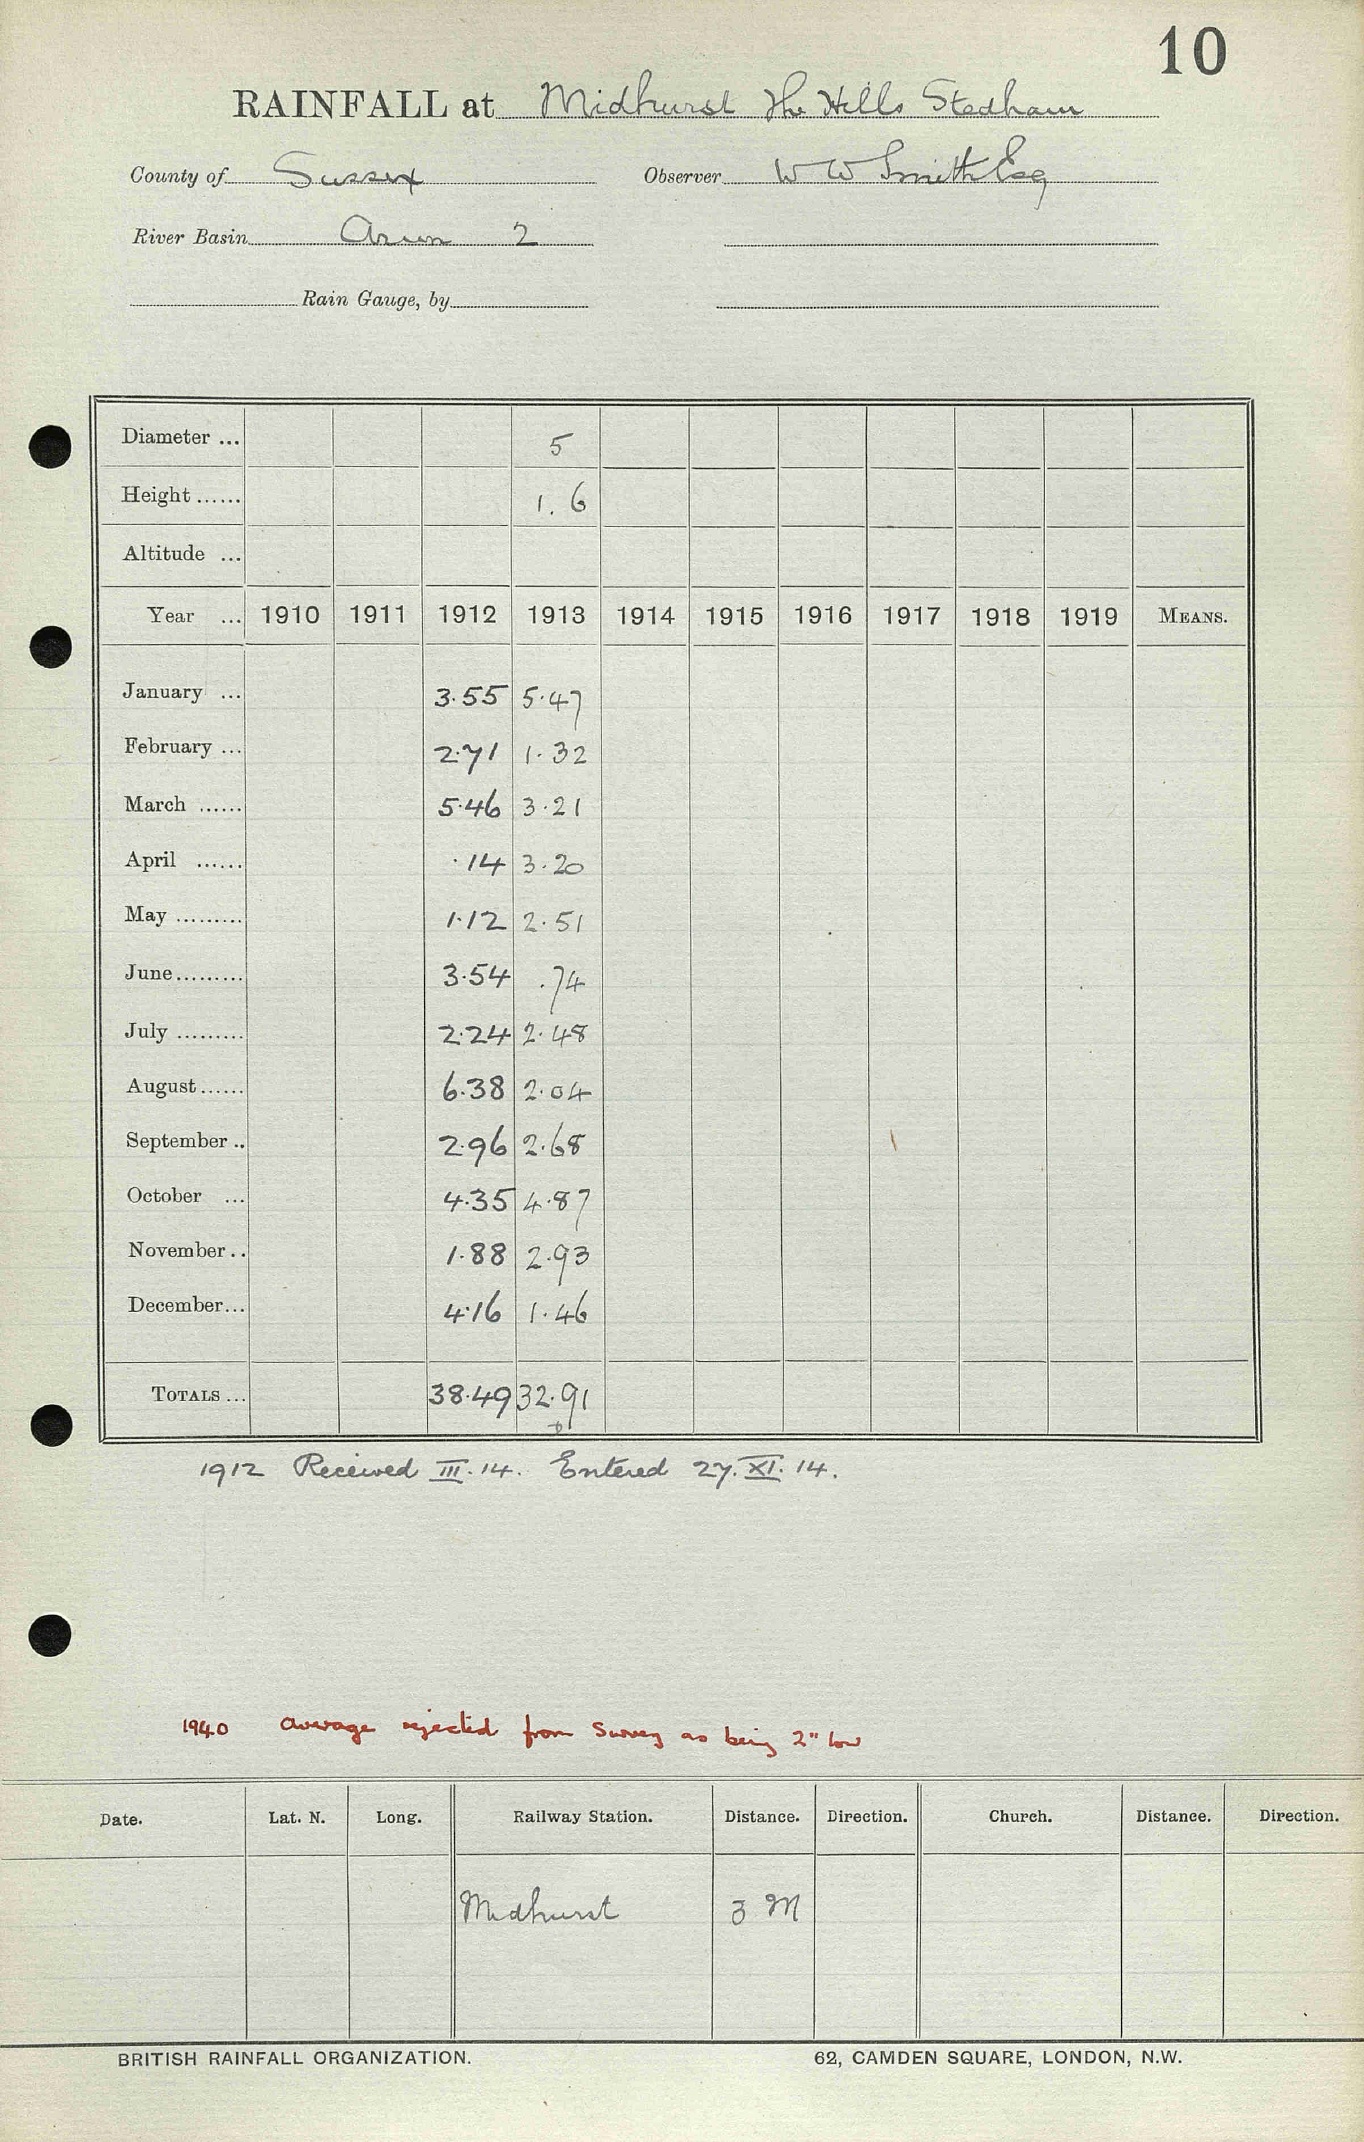 10
RAINFALL at Midhurst The Hills Stedham
County of Sussex Observer W W Smith Esq
River Basin Arun 2
Rain Gauge, by
Diameter ... 5
Height ...... 1. 6
Altitude ...
Year ... 1910 1911 1912 1913 1914 1915 1916 1917 1918 1919 MEANS.
January ... 3.55 5.47
February ... 2.71 1.32
March ...... 5.46 3.21
April ...... .14 3.20
May ......... 1.12 2.51
June ......... 3.54 .74
July ......... 2.24 2.48
August ...... 6.38 2.04
September .. 2.96 2.68
October ... 4.35 4.87
November .. 1.88 2.93
December ... 4.16 1.46
TOTALS ... 38.49 32.91
1912 Received III.14. Entered 27.XI.14.
1940 Average rejected from Survey as being 2" low
Date. Lat. N. Long. Railway Station. Distance. Direction. Church. Distance. Direction.
Midhurst 3 M
BRITISH RAINFALL ORGANIZATION. 62, CAMDEN SQUARE, LONDON, N.W.